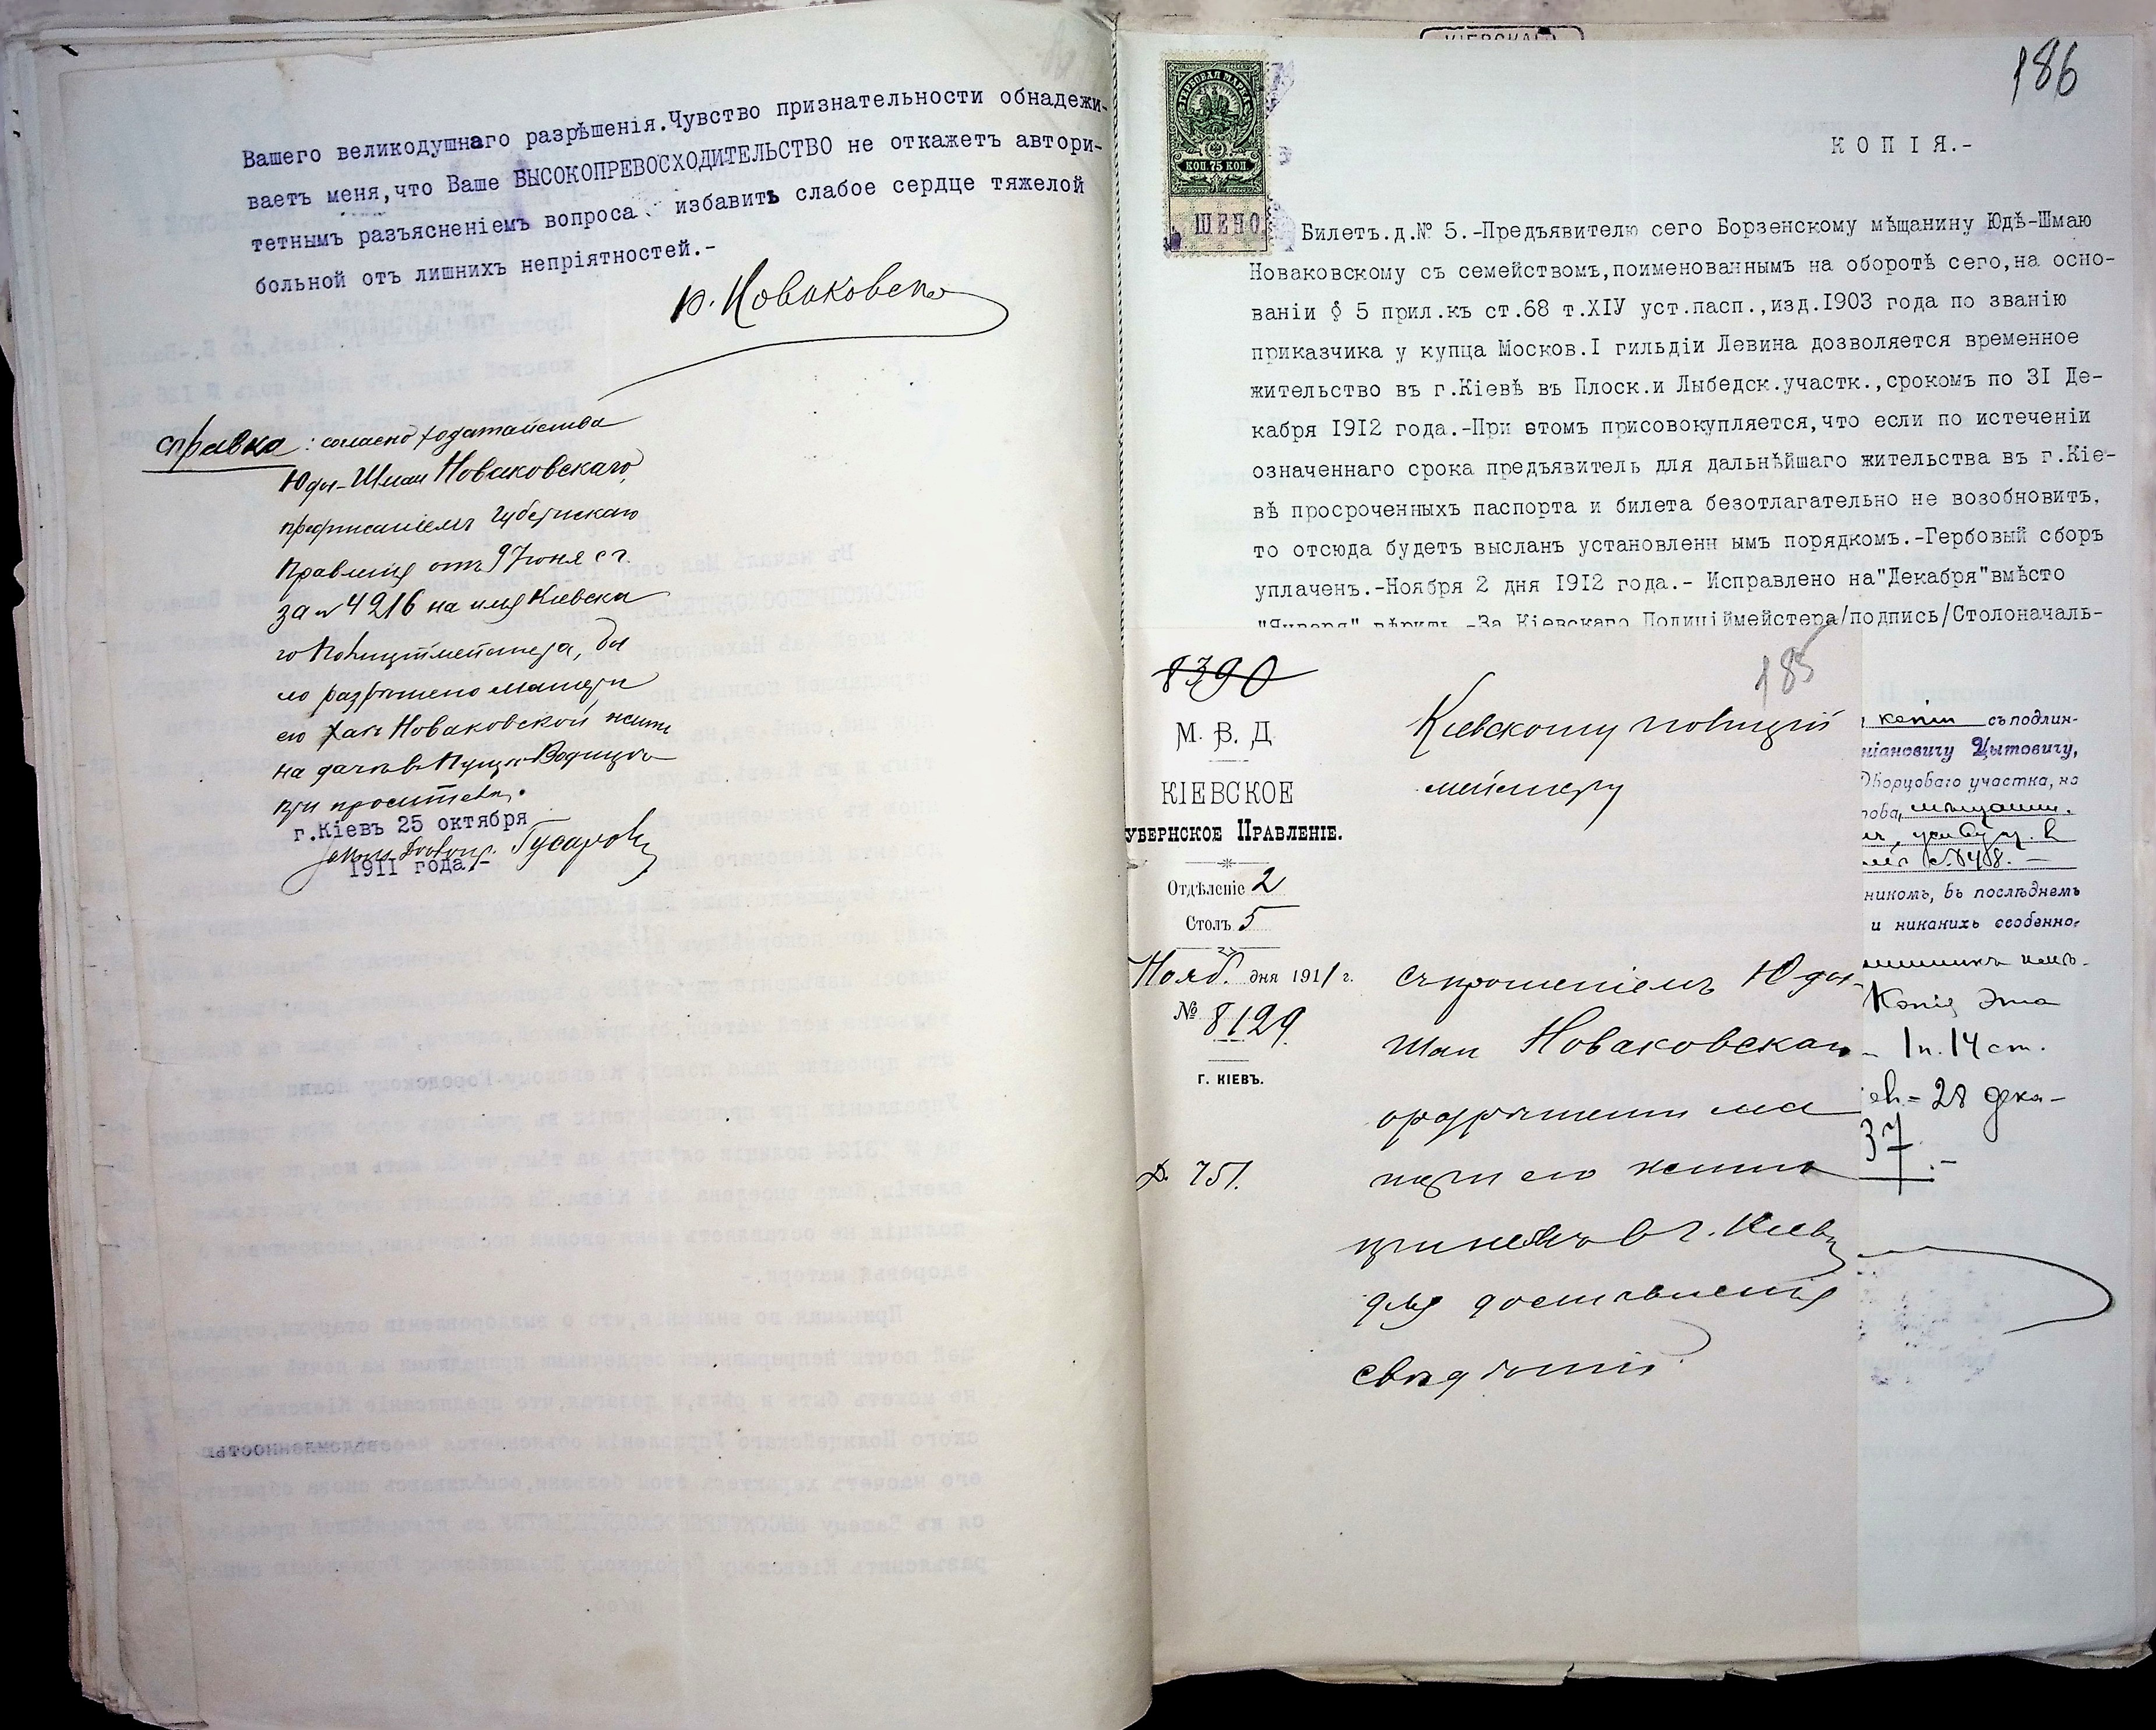 Вашего великодушнаго разрѣшенія.Чувство признательности обнадежи-
ваетъ меня,что Ваше ВЫСОКОПРЕВОСХОДИТЕЛЬСТВО не откажетъ автори-
тетнымъ разъясненіемъ вопроса избавить слабое сердце тяжелой
больной отъ лишнихъ непріятностей.-
Ю. Новаковскій
Справка: согласно ходатайства
Юды-Шмаи Новаковскаго,
предписаніемъ Губернскаго
Правленія отъ 9 Іюня с г.
за № 4216 на имя Кіевска
го Полиціймейстера, бы
ло разрѣшено матери
его Хаѣ Новаковской жить
на дачѣ въ Пущѣ-Водицѣ
при просителѣ.
г.Кіевъ 25 октября
1911 года.-
Гусаровъ
КІЕВСКАГО
186
ГЕРБОВАЯ МАРКА
КОП. 75 КОП
ШЕНО
К О П І Я.-
Билетъ.д.№ 5.-Предъявителю сего Борзенскому мѣщанину Юдѣ-Шмаю
Новаковскому съ семействомъ,поименованнымъ на оборотѣ сего,на осно-
ваніи § 5 прил.къ ст.68 т.XIУ уст.пасп.,изд.1903 года по званію
приказчика у купца Москов.I гильдіи Левина дозволяется временное
жительство въ г.Кіевѣ въ Плоск.и Лыбедск.участк.,срокомъ по 3I Де-
кабря I9I2 года.-При этомъ присовокупляется,что если по истеченіи
означеннаго срока предъявитель для дальнѣйшаго жительства въ г.Кіе-
вѣ просроченныхъ паспорта и билета безотлагательно не возобновитъ,
то отсюда будетъ высланъ установленн ымъ порядкомъ.-Гербовый сборъ
уплаченъ.-Ноября 2 дня I9I2 года.- Исправлено на"Декабря"вмѣсто
"Января" вѣрить.-За Кіевскаго Полиціймейстера/подпись/Столоначаль-
8390
185
М. В. Д
КІЕВСКОЕ
УБЕРНСКОЕ ПРАВЛЕНІЕ.
Отдѣленіе 2
Столъ 5
Нояб. дня 1911 г.
№ 8129
Г. КІЕВЪ.
Д. 751.
Кіевскому полицій
мейстеру
Съ прошеніемъ Юды-
Шмаи Новаковскаго
о разрѣшеніи ма
тери его жить
при немъ в г. Кіевѣ
для доставленія
свѣдѣній.
копіи съ подлин-
ніановичу Цытовичу,
Дворцоваго участка, на
рова, мѣщанин.
с. № 48. —
никомъ, въ послѣднемъ
и никакихъ особенно-
Копія эта
1 п. 14 ст.
28 дека-
37